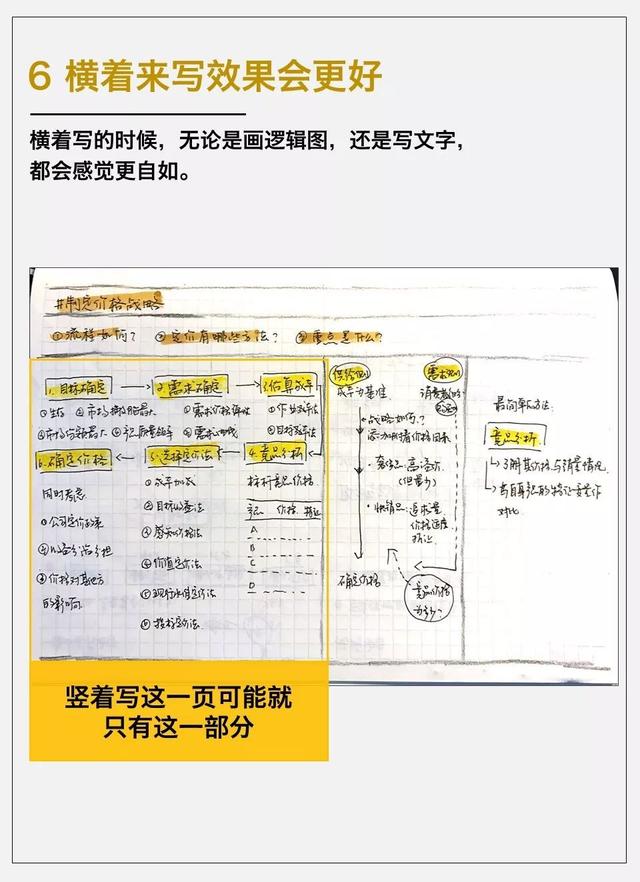 6 横着来写效果会更好
横着写的时候，无论是画逻辑图，还是写文字，
都会感觉更自如。
#制定价格战略
①流程如何？ ②定价有哪些方法？ ③重点是什么？
1.目标确定 2.需求确定 3.估算成本
①生存 ②市场撇脂最大 ①需求价格弹性 ①作业成本法
③市场份额最大 ④产品质量领导 ②需求曲线 ②目标成本法
6.确定价格 5.选择定价法 4.竞品分析
同时考虑
①公司定价政策
③价格对其他方
的影响
①成本加成
②目标收益法
③感知价格法
④价值定价法
⑤现行水平定价法
⑥投标定价法
标杆竞品价格
产品 价格 特征
A
B
C
D
供给侧
成本为基准
战略如何？
添加战略价格因素
奢侈品：高溢价
(但量少)
快销品：追求量
价格适度
确定价格
需求侧
竞品价格
为多少
最简单的方法：
竞品分析
了解其价格与销量情况
对比
竖着写这一页可能就
只有这一部分